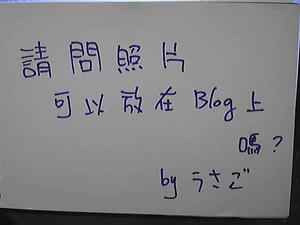 請問照片
可以放在Blog上
嗎？
by うさご